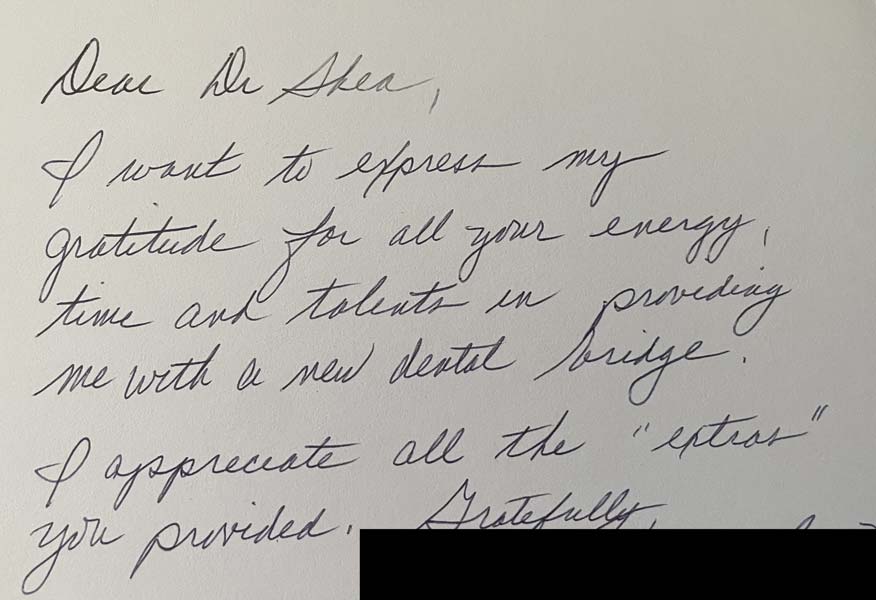 Dear Dr Shea,
I want to express my
gratitude for all your energy,
time and talents in providing
me with a new dental bridge.
I appreciate all the "extras"
you provided. Gratefully,